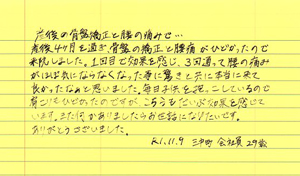 産後の骨盤矯正と腰の痛みで…
産後4ヶ月を過ぎ、骨盤の矯正と腰痛がひどかったので
来院しました。1回目で効果を感じ、3回通って腰の痛み
がほぼ気にならなくなった事に驚きと共に本当に来て
良かったなぁと思いました。毎日子供を抱っこしているので
肩こりもひどかったのですが、こちらもだいぶ効果を感じて
います。また何かありましたらお世話になりたいです。
ありがとうございました。
R1.11.9 会社員 29歳